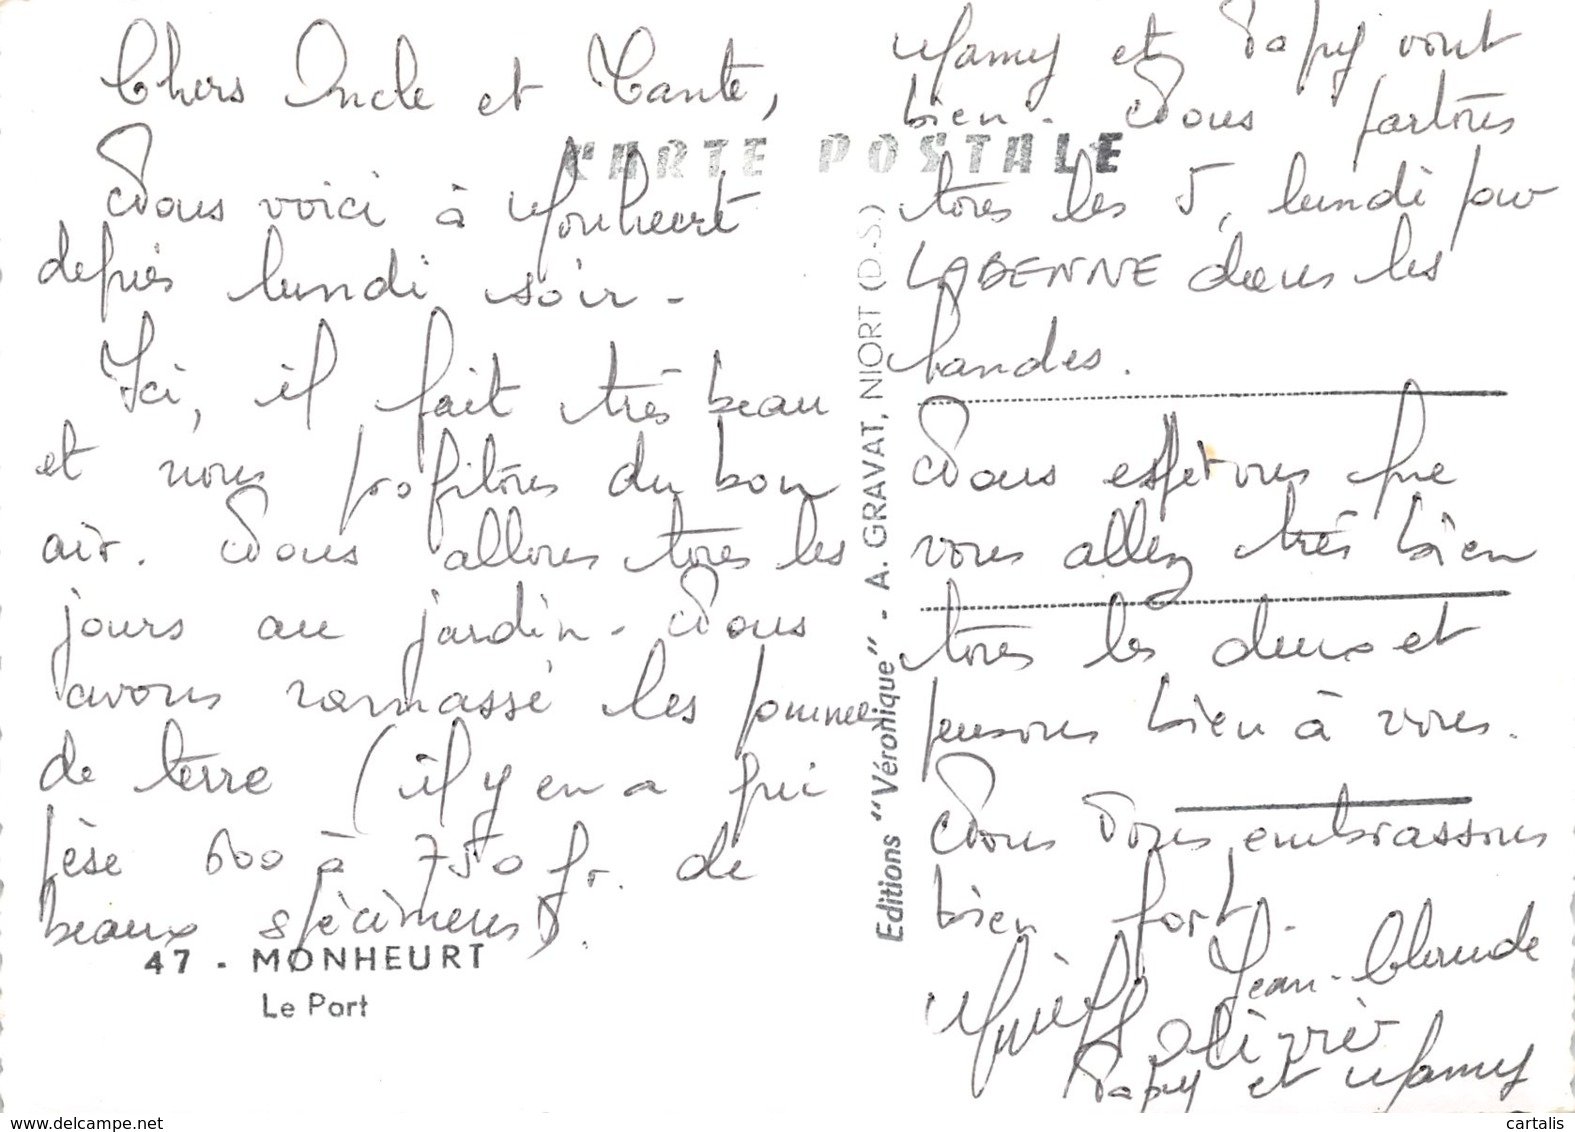 Chers Oncle et Tante,
Nous voici à Monheurt
depuis lundi soir -
Ici, il fait très beau
et nous profitons du bon
air. Nous allons tous les
jours au jardin - Nous
avons ramassé les pommes
de terre (il y en a qui
pèse 600 à 750 gr. de
beaux spécimens).
47 - MONHEURT
Le Port
CARTE POSTALE
Editions "Véronique" - A. GRAVAT, NIORT (D-S.)
Mamy et Papy vont
bien - Nous partons
tous les 5, lundi pour
LABENNE dans les
Landes.
Nous espérons que
vous allez très bien
tous les deux et
pensons bien à vous.
Nous vous embrassons
bien fort -
Jean-Claude
Olivier
Papy et Mamy
www.delcampe.net
cartalis